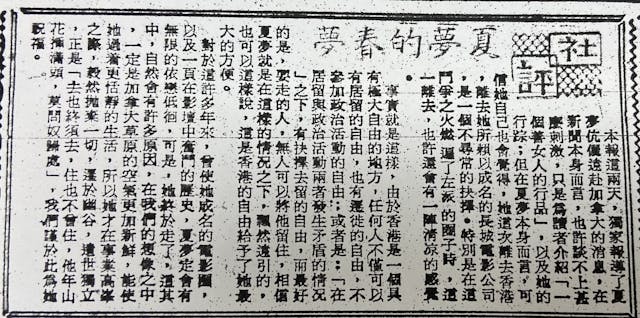 社評
夏夢的春夢
本報這兩天,獨家報導了夏
夢伉儷遠赴加拿大的消息,在
新聞本身而言,也許談不上甚
麼刺激,只是爲讀者介紹「一
個善女人的行品」,以及她的
行踪;但在夏夢本身而言,可
信她自己也會覺得,她這次離去香港
,離去她所賴以成名的長城電影公司
,是一個不尋常的抉擇。特別是在這
鬥爭之火燃遍了左派的圈子時,這
一離去,也許還會有一陣清涼的感覺
。
事實就是這樣,由於香港是一個具
有極大自由的地方,任何人不僅可以
有居留的自由,也有遷徙的自由,不
參加政治活動的自由;或者是:「在
居留與政治活動兩者發生矛盾的情況
」之下,有抉擇去留的自由,而最好
的是,要走的人,無人可以將他留住,相信
夏夢就是在這樣的情況之下,飄然遠引的,
也可以這樣說,這是香港的自由給予了她最
大的方便。
對於這許多年來,曾使她成名的電影圈,
以及一頁在影壇中奮鬥的歷史,夏夢定會有
無限的依戀低徊,可是,她終於走了,這其
中,自然會有許多原因,在我們的想像之中
,一定是加拿大草原的空氣更加新鮮,能使
她過着更恬靜的生活,所以她才在事業高峯
之際,毅然拋棄一切,還於幽谷,遺世獨立
,正是「去也終須去,住也不曾住,他年山
花插滿頭,莫問奴歸處」,我們謹於此爲她
祝福。